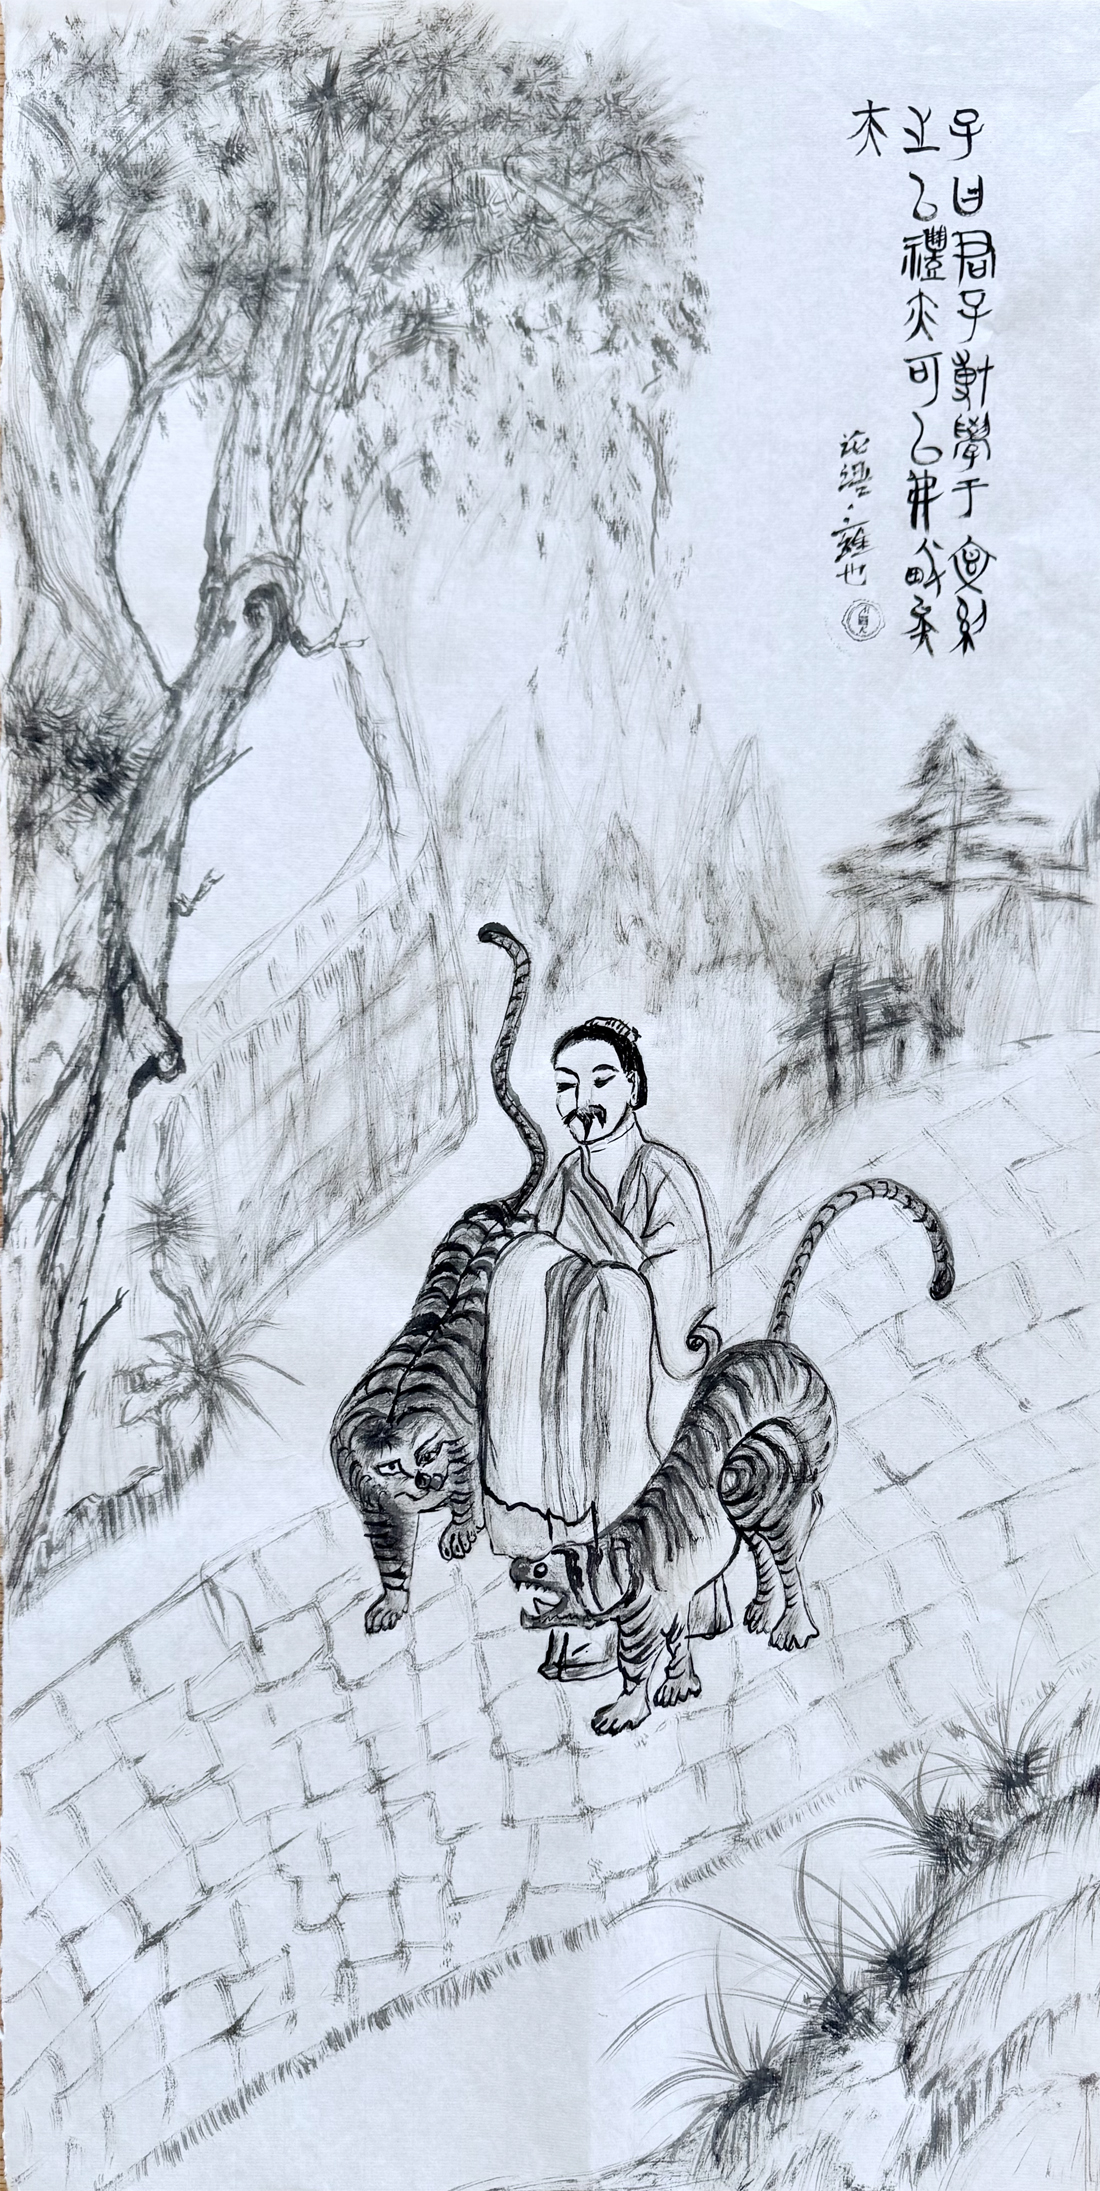 子曰君子博學于文約
之以禮亦可以弗畔矣
夫
论语·雍也